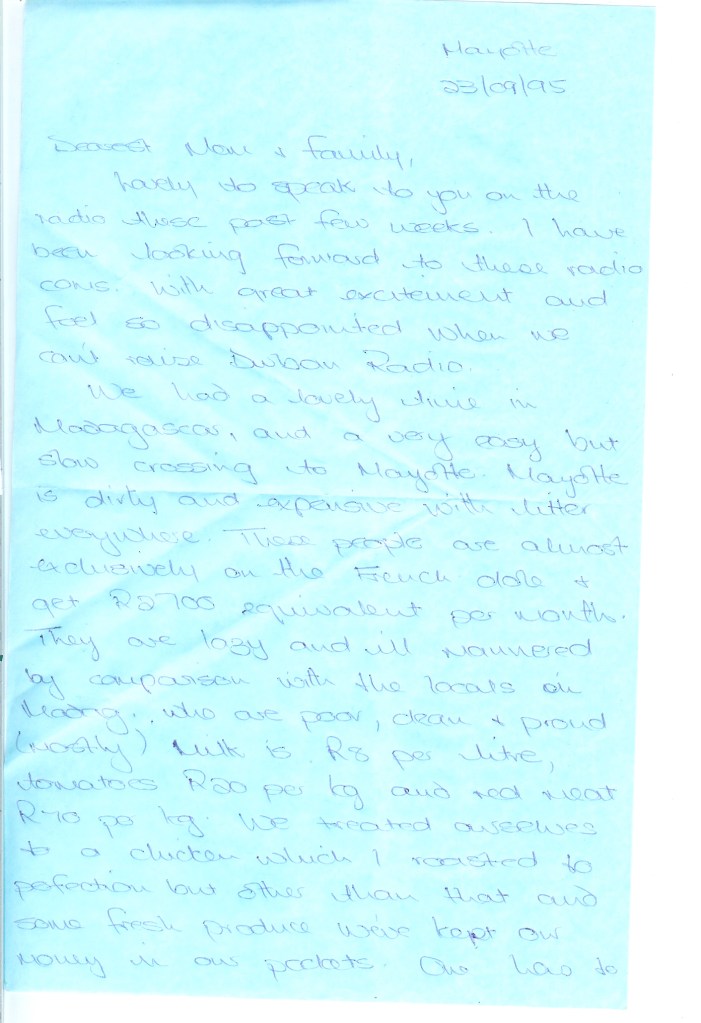 Mayotte
23/09/95
Dearest Mom & family,
Lovely to speak to you on the
radio these past few weeks. I have
been looking forward to these radio
coms. with great excitement and
feel so disappointed when we
can't raise Durban Radio.
We had a lovely time in
Madagascar, and a very easy but
slow crossing to Mayotte. Mayotte
is dirty and expensive with litter
everywhere. These people are almost
exclusively on the French dole &
get R2700 equivalent per month.
They are lazy and ill mannered
by comparison with the locals on
Madag. who are poor, clean & proud
(mostly) Milk is R8 per litre,
tomatoes R20 per kg and red meat
per kg. We treated ourselves
to a chicken which I roasted to
perfection but other than that and
some fresh produce we've kept our
money in our pockets. One has to